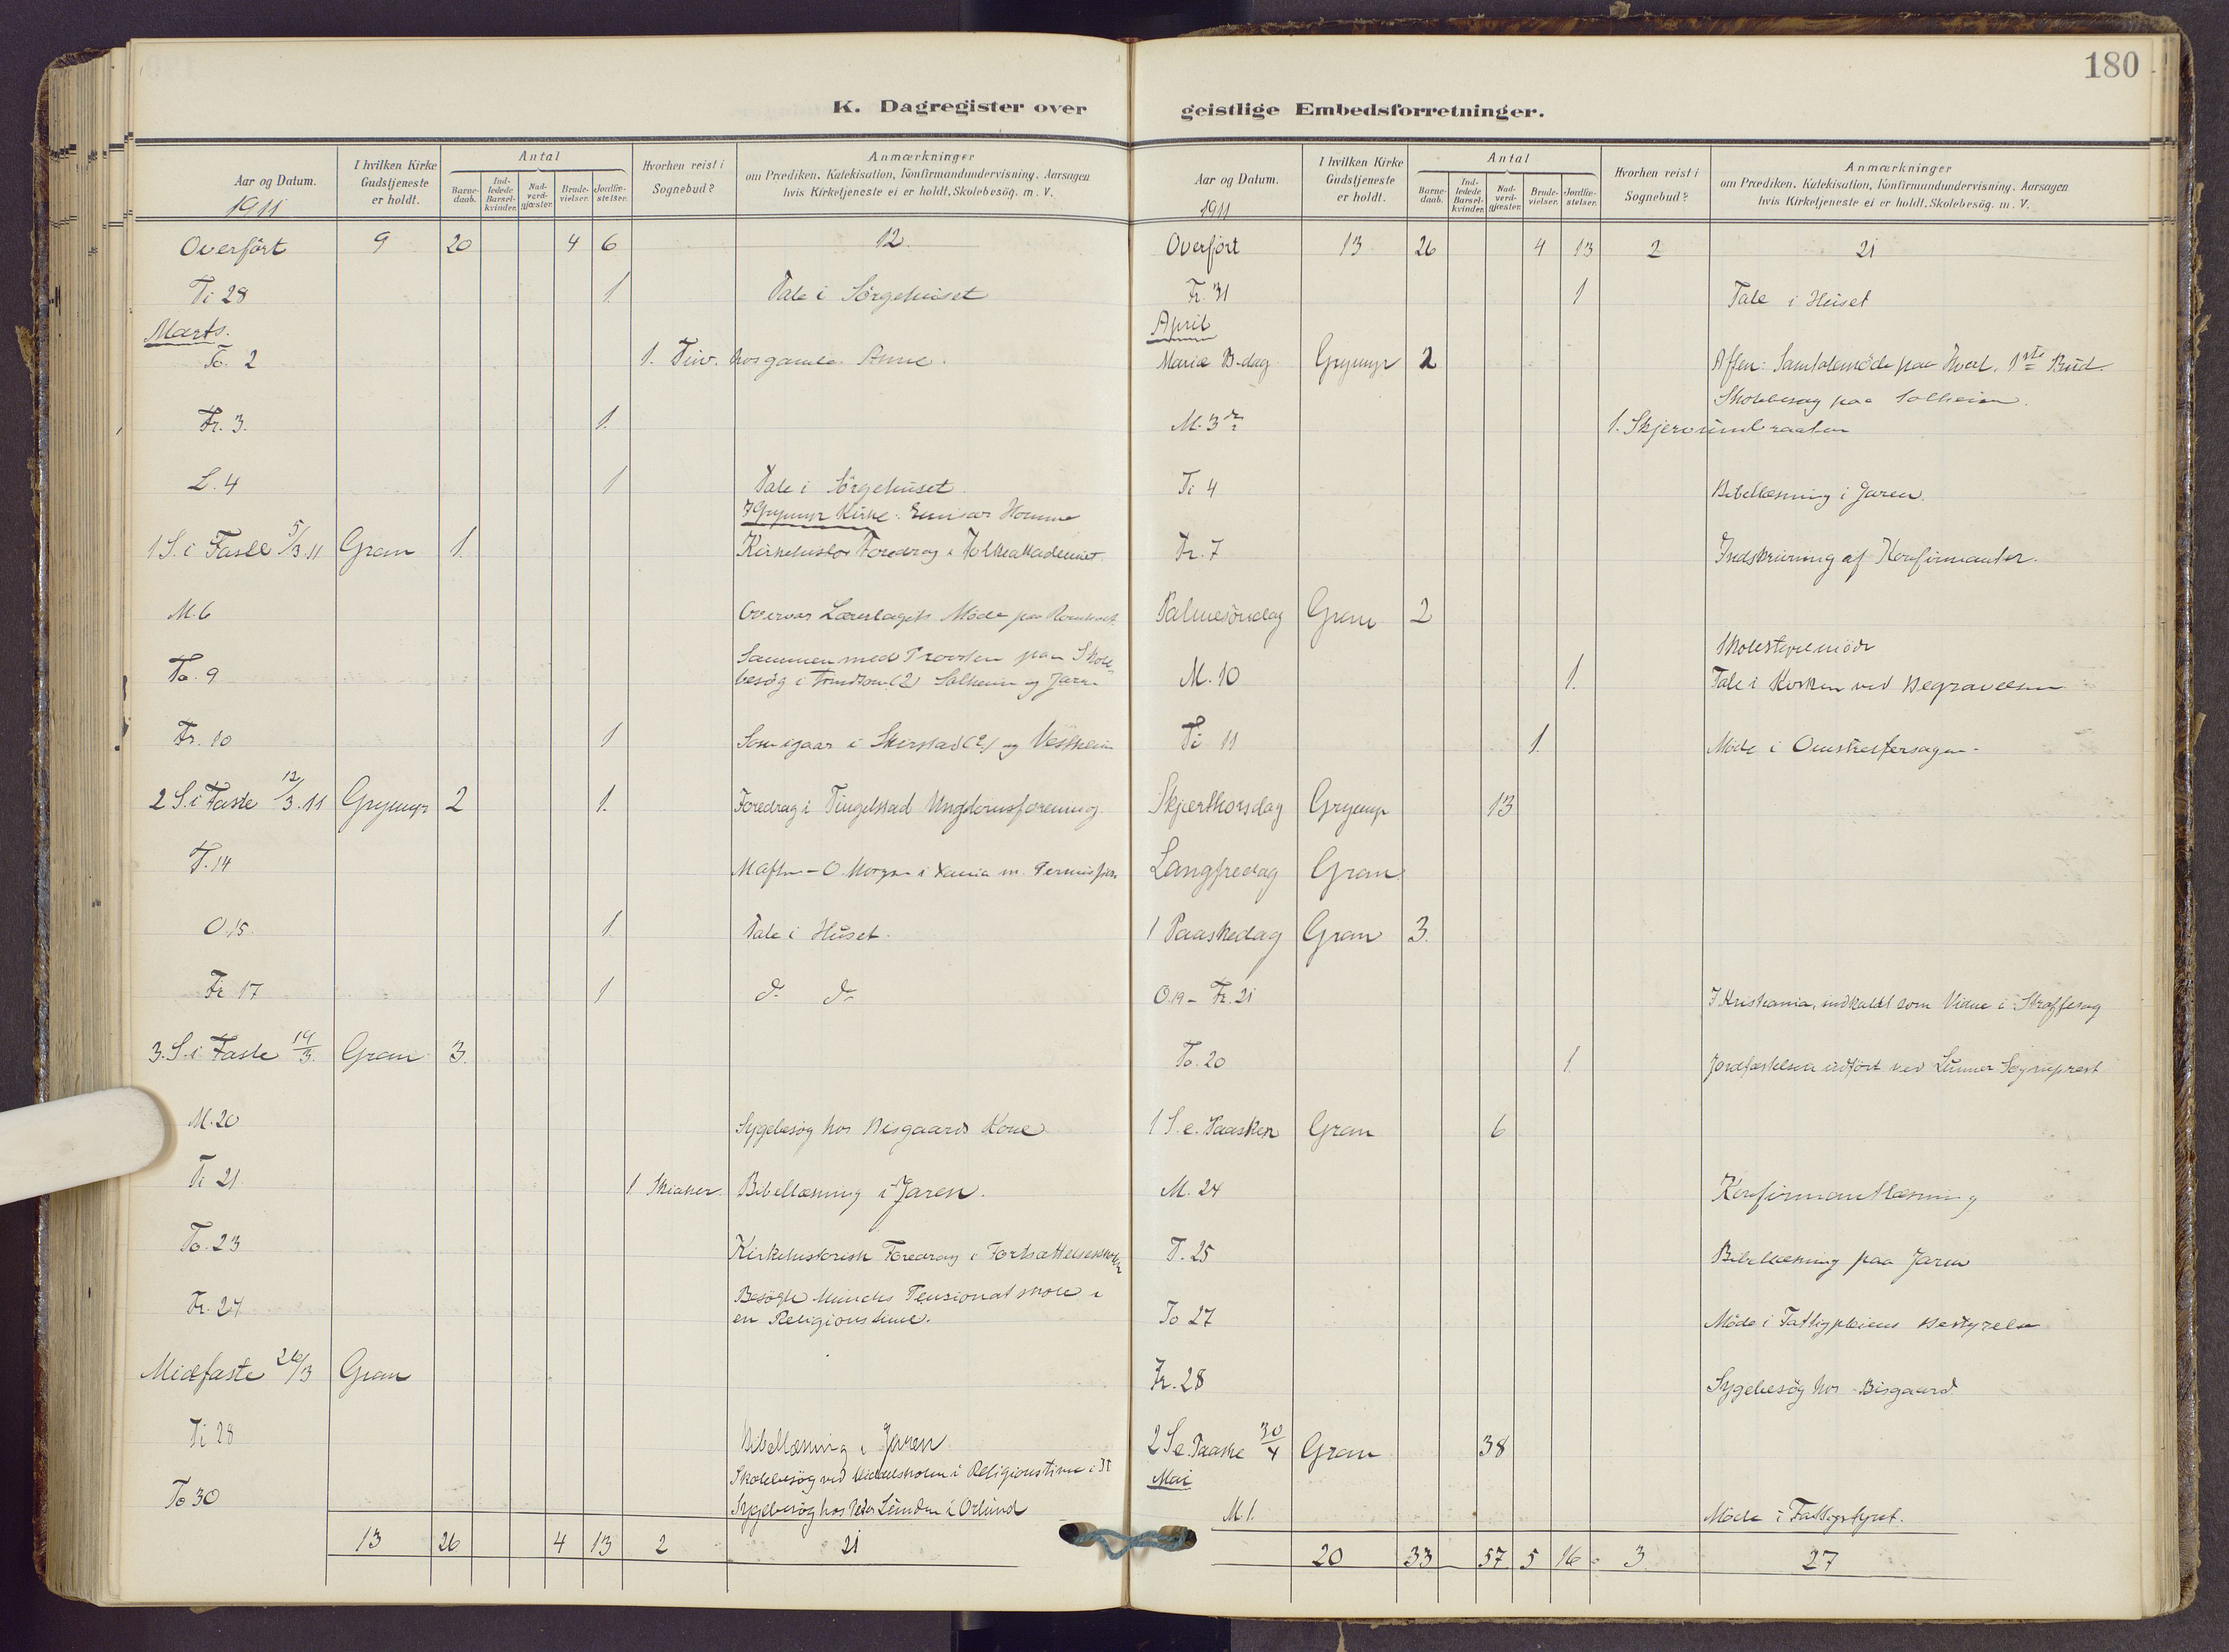 180
K. Dagregister over geistlige Embedsforretninger.
Aar og Datum. I hvilken Kirke Gudstjeneste er holdt. Antal Barnedaab. Indledede Barselkvinder. Nadverdgjæster. Brudevielser. Jordfæstelser. Hvorhen reist i Sognebud? Anmærkninger om Prædiken, Katekisation, Konfirmandundervisning, Aarsagen hvis Kirketjeneste ei er holdt, Skolebesög. m. V.
1911
Overfört 9 20 4 6 12.
Ti 28 1. Tale i Sörgehuset
Marts.
To. 2 1. hos gamle Anne.
Fr. 3. 1.
L. 4 1 Tale i Sörgehuset
I Grymyr Kirke: Emisær Homme
1 S. i Faste 5/3.11 Gran 1. Foredrag i Folkeakademiet
M. 6 Overvar Lærerlagets Möde paa
To. 9 Sammen med Provsten paa Skole-
besög i (2) Solheim og Jaren
Fr. 10 1 Som igaar i (2) og Vestheim
2 S. i Faste 12/3.11 Grymyr 2 1. Foredrag i Tingelstad Ungdomsforening.
T. 14 i Xania m. Permission
O. 15. 1. Tale i Huset.
Fr 17 1 do do
3. S. i Faste 19/3. Gran 3.
M. 20 Sygebesög hos Bisgaards Kone
Ti 21. 1 Skiaker. Bibellæsning i Jaren.
To. 23 Kirkehistorisk Foredrag i Fortsættelsesskolen
Fr. 24. Besögte Muncks Pensionatskole i
en Religionstime.
Midfaste 26/3 Gran
Ti 28 Bibellæsning i Jaren
Skolebesög ved Middelskolen i Religionstime i
To 30 Sygebesög hos Peder Lunden i Orlund
13 26 4 13 2 21
Aar og Datum. I hvilken Kirke Gudstjeneste er holdt. Antal Barnedaab. Indledede Barselkvinder. Nadverdgjæster. Brudevielser. Jordfæstelser. Hvorhen reist i Sognebud? Anmærkninger om Prædiken, Katekisation, Konfirmandundervisning, Aarsagen hvis Kirketjeneste ei er holdt, Skolebesög. m. V.
1911
Overfört 13 26 4 13 2 21
Fr. 31 1 Tale i Huset
April
Mariæ B-dag Grymyr 2 Aften: Samtalemöde paa Hval. 1ste Bud.
Skolebesög paa Solheim.
M. 3die 1. Skjervumbraaten
Ti 4 Bibellæsning i Jaren.
Fr. 7 Indskrivning af Konfirmanter.
Palmesöndag Gran 2
Skolestyremöde
M. 10 1. Tale i Kirken ved Begravelsen
Ti 11 1. Möde i
Skjærthorsdag Grymyr 13
Langfredag Gran
1 Paaskedag Gran 3.
O. 19 - Fr. 21 I Kristiania, indkaldt som Vidne i Straffesag
To. 20 1. Jordfæstelsen udfört ved Lunner Sogneprest
1 S. e. Paasken Gran 6
M. 24 Konfirmantlæsning
T. 25 Bibellæsning paa Jaren
To 27 Möde i Fattigpleiens Bestyrelse
Fr. 28 Sygebesög hos Bisgaard
2 S e. Paaske 30/4 Gran 38
Mai
M. 1. Möde i Fattigstyret.
20 33 57 5 16 3 27